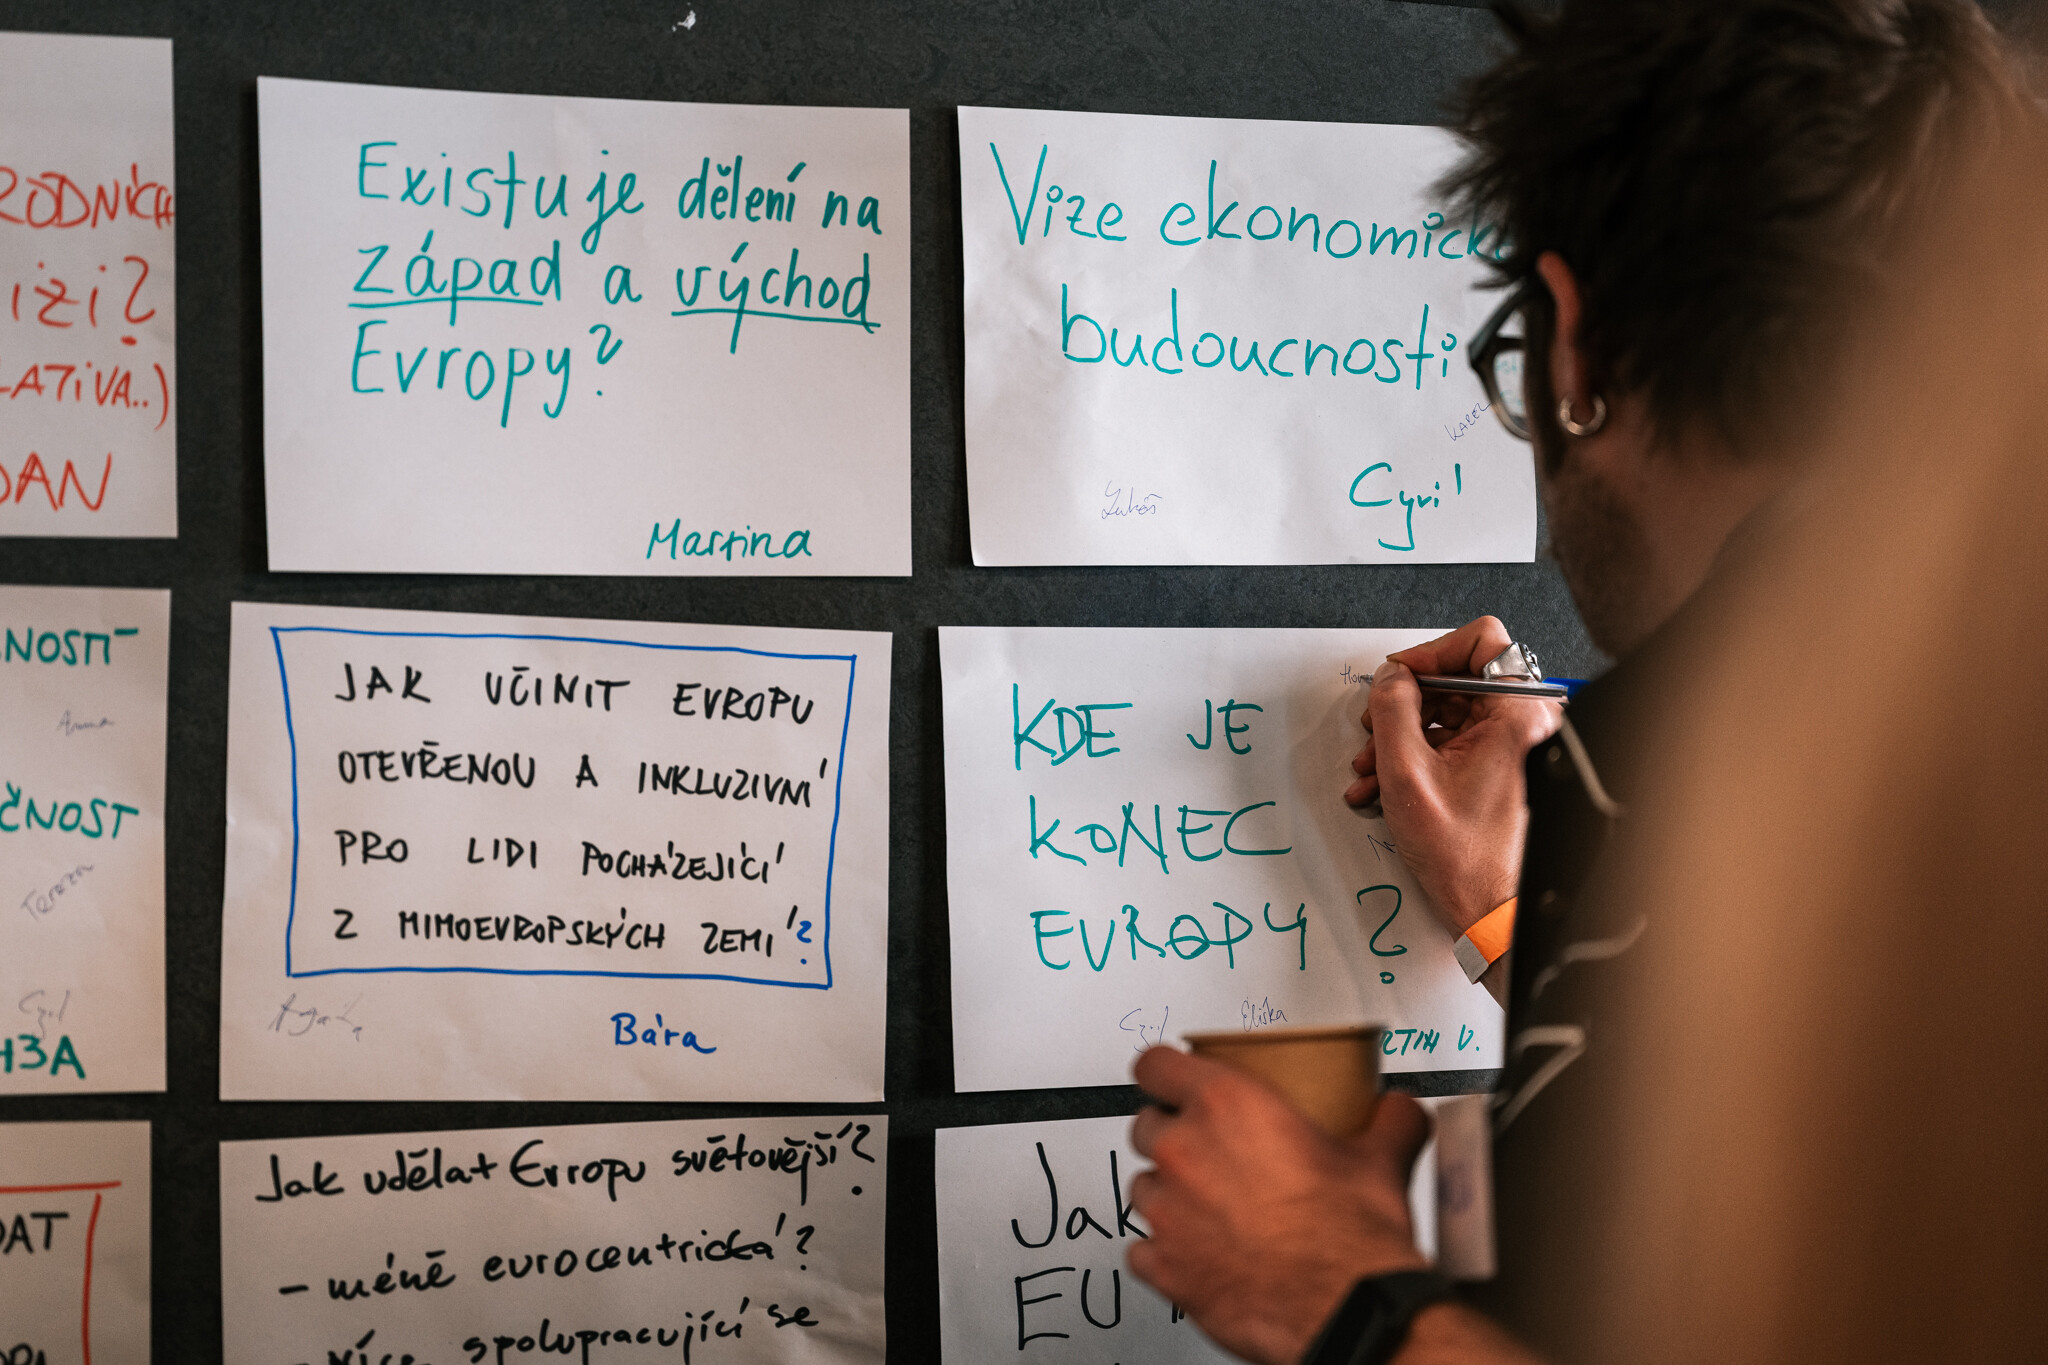 Existuje dělení na
západ a východ
Evropy?
Martina
Vize ekonomické
budoucnosti
KAREL
Lukáš
Cyril
IZI?
LATIVA..)
DAN
NOSTÍ
Anna
ČNOST
Tereza
Cyril
JAK UČINIT EVROPU
OTEVŘENOU A INKLUZIVNÍ
PRO LIDI POCHÁZEJÍCÍ
Z MIMOEVROPSKÝCH ZEMÍ?
Bára
KDE JE
KONEC
EVROPY ?
Cyril
Eliška
RTIN V.
DAT
Jak udělat Evropu světovější?
- méně eurocentrická?
- více spolupracující se
Jak
EU